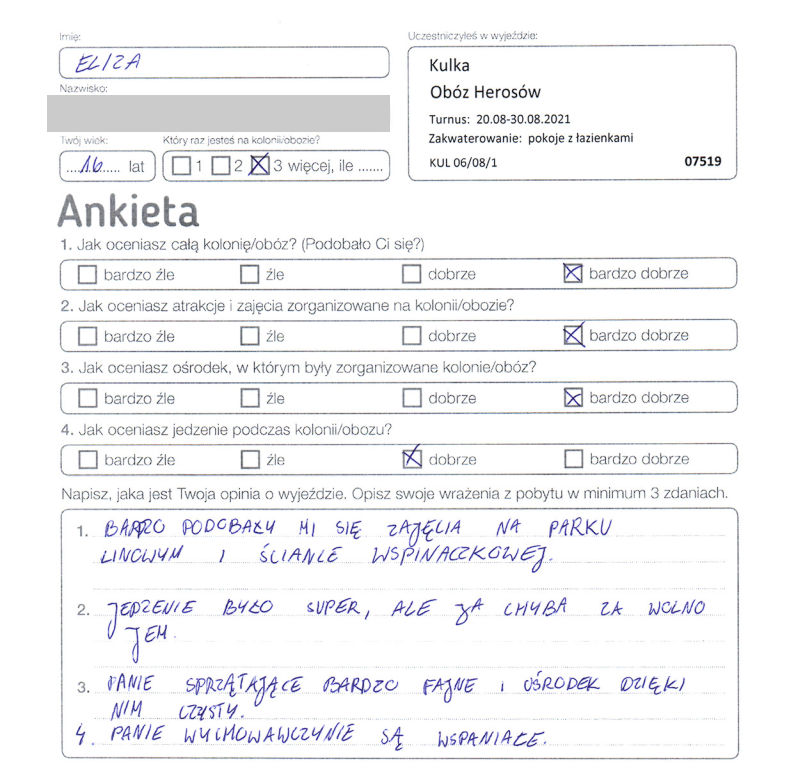 Imię:
Uczestniczyłeś w wyjeździe:
ELIZA
Kulka
Obóz Herosów
Nazwisko:
Turnus: 20.08-30.08.2021
Zakwaterowanie: pokoje z łazienkami
Twój wiek:
Który raz jesteś na kolonii/obozie?
....16..... lat
1 2 3 więcej, ile .......
KUL 06/08/1 07519
Ankieta
1. Jak oceniasz całą kolonię/obóz? (Podobało Ci się?)
bardzo źle źle dobrze bardzo dobrze
2. Jak oceniasz atrakcje i zajęcia zorganizowane na kolonii/obozie?
bardzo źle źle dobrze bardzo dobrze
3. Jak oceniasz ośrodek, w którym były zorganizowane kolonie/obóz?
bardzo źle źle dobrze bardzo dobrze
4. Jak oceniasz jedzenie podczas kolonii/obozu?
bardzo źle źle dobrze bardzo dobrze
Napisz, jaka jest Twoja opinia o wyjeździe. Opisz swoje wrażenia z pobytu w minimum 3 zdaniach.
1. BARDZO PODOBAŁY MI SIĘ ZAJĘCIA NA PARKU
LINOWYM I ŚCIANCE WSPINACZKOWEJ.
2. JEDZENIE BYŁO SUPER, ALE JA CHYBA ZA WOLNO
JEM.
3. PANIE SPRZĄTAJĄCE BARDZO FAJNE I OŚRODEK DZIĘKI
NIM CZYSTY.
4. PANIE WYCHOWAWCZYNIE SĄ WSPANIAŁE.